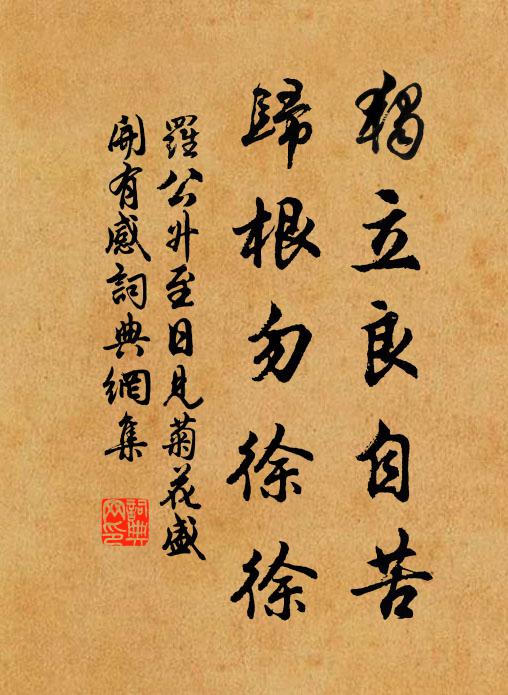 獨立良自苦
歸根勿徐徐
羅公升至日見菊花盛
開有感詞典網集
詞典
网印